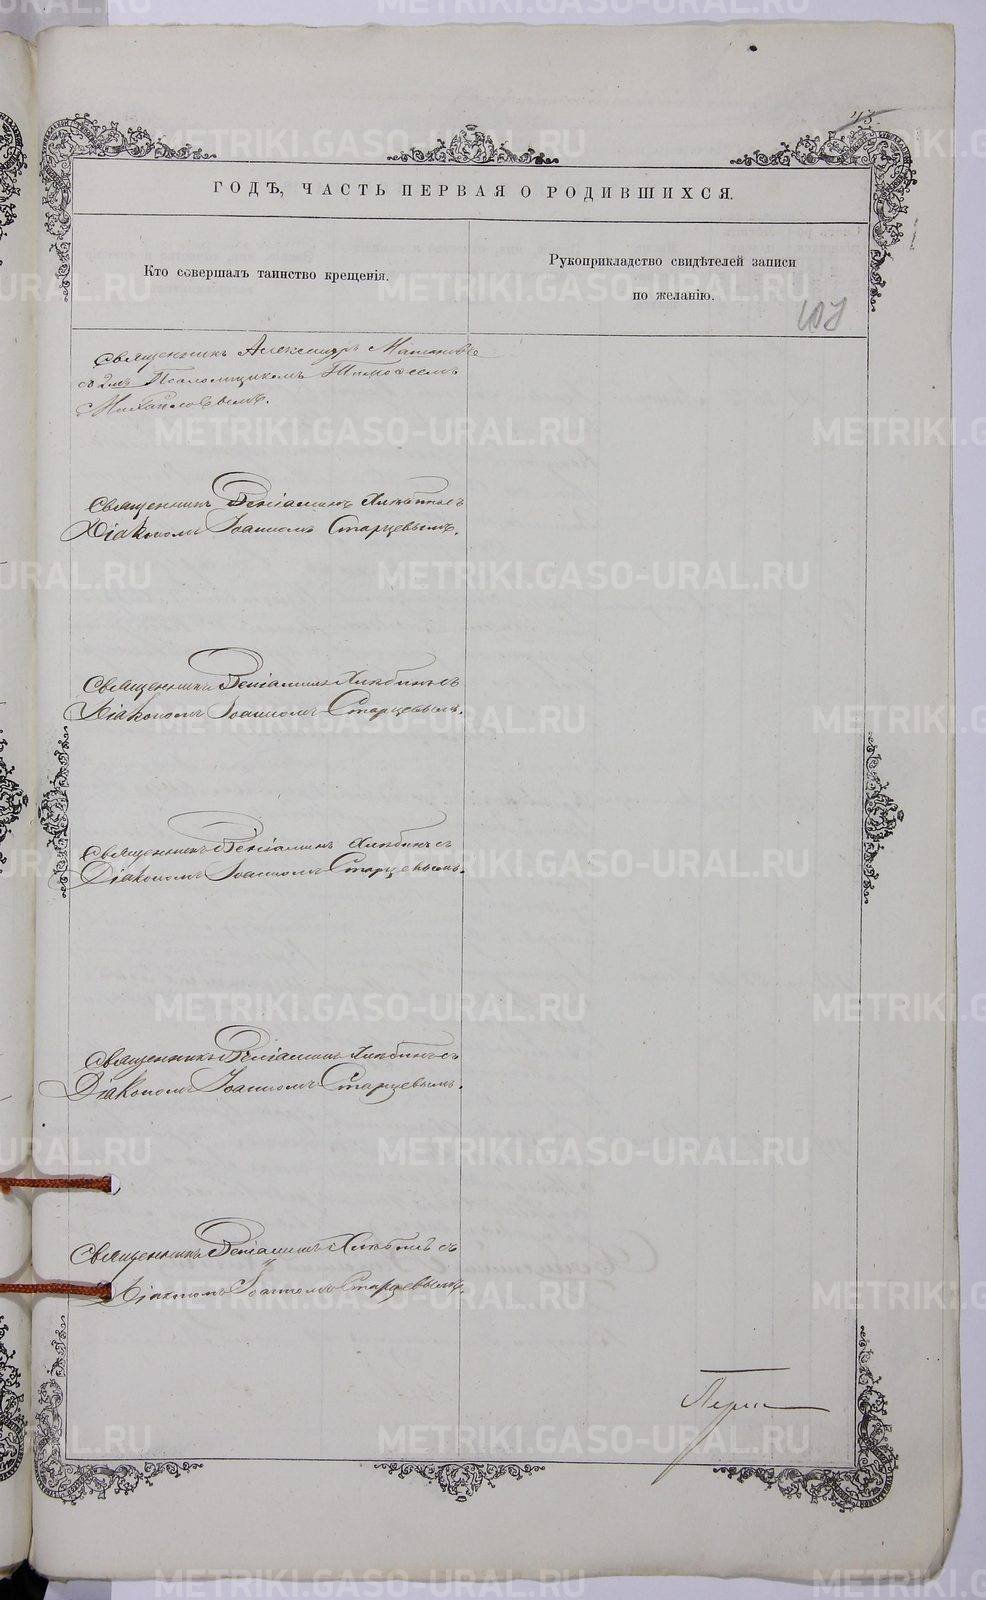 ГОДЪ, ЧАСТЬ ПЕРВАЯ О РОДИВШИХСЯ.
Кто совершалъ таинство крещенія.
Рукоприкладство свидѣтелей записи
по желанію.
Священникъ Александръ
Псаломщикомъ Тимофеемъ
Михайловымъ.
Священникъ Веніаминъ Хлѣбинъ съ
Діакономъ Іоанномъ Старцевымъ.
Священникъ Веніаминъ Хлѣбинъ съ
Діакономъ Іоанномъ Старцевымъ.
Священникъ Веніаминъ Хлѣбинъ съ
Діакономъ Іоанномъ Старцевымъ.
Священникъ Веніаминъ Хлѣбинъ съ
Діакономъ Іоанномъ Старцевымъ.
Священникъ Веніаминъ Хлѣбинъ съ
Діакономъ Іоанномъ Старцевымъ.
METRIKI.GASO-URAL.RU